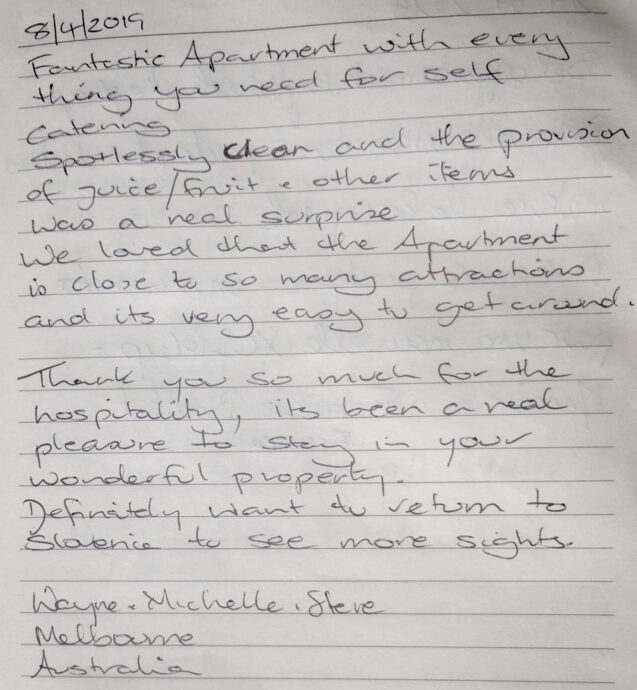 8/4/2019
Fantastic Apartment with every
thing you need for self
catering
Spotlessly clean and the provision
of juice/fruit & other items
was a real surprize
We loved that the Apartment
is close to so many attractions
and its very easy to get around.
Thank you so much for the
hospitality, its been a real
pleasure to stay in your
wonderful property.
Definitely want to return to
Slovenia to see more sights.
Wayne. Michelle. Steve
Melbourne
Australia